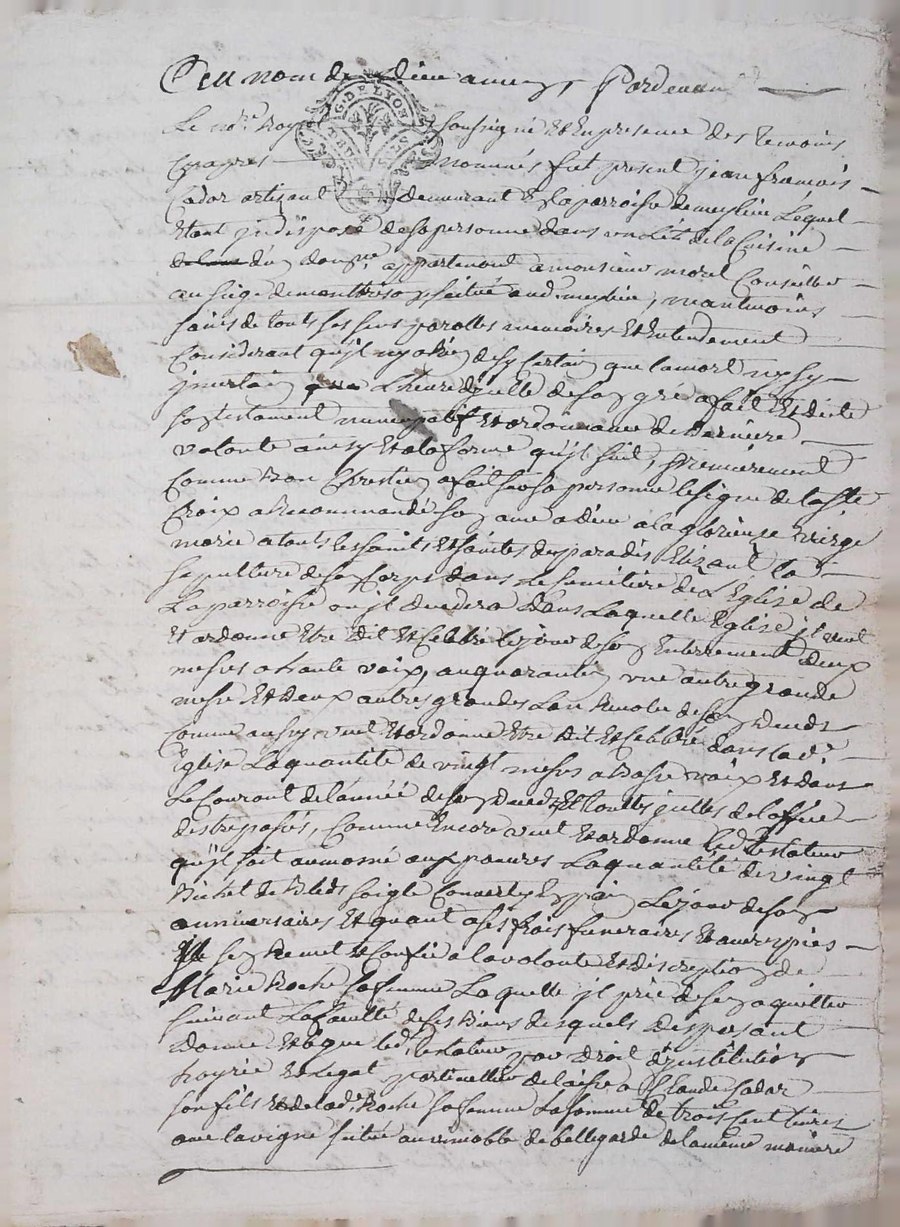 Au nom de Dieu amen Pardevan
G. DE LYON
Le no.re Roy soussigné et en presence des temoins
cy apres nommés fut present jean francois
Cadar artisant demeurant en la parroisse de lequel
etant jndisposé de sa personne dans un lit de la Cuisine
du domne appartenant a monsieur morel Conseiller
au siege de montbrison situé aud. neantmoins
sains de touts ses sens parolles memoires et Entendement
Considerant qu'jl ny a rien de sy Certain que la mort ny sy
jncertain que L'heure d'jcelle de son gré a fait et dicté
son testament nuncupatif et ordonnance de derniere
volonté ainsy et a la forme qu'jl suit, premierement
Comme bon Chrestien a fait sur sa personne le signe de la ste
Croix a Recommandé son ame a dieu a la glorieuse vierge
marie a touts les saints et saintes du paradis Elizant la
sepulture de son Corps dans le simitiere de L'Eglise de
La parroisse ou jl decedera dans Laquelle Eglise jl veut
et ordonne Etre dit et Cellebré le jour de son Enterrement deux
messes a haute voix, au quarantin une autre grande
messe et deux autres grandes L'an Revolu de son deceds
comme aussy veut et ordonne Etre dit et Cellebré dans lad.e
Eglise La quantité de vingt messes a basse voix et dans
Le Courant de l'année de son deceds et touttes jcelles de l'office
des trepassés, Comme Encore veut et ordonne led. testateur
qu'jl soit aumosné aux pauvres La quantité de vingt
bichet de bleds soigle Convertis En pain Le jour de son
anniversaires et quant a ses frois funeraires et œuvres pies
jl se Remet et Confie a la volonté et discreption de
Marie Roche sa femme Laquelle jl prie de s'en aquitter
suivant La faculté de ses biens desquels disposant
donne et legue led. testateur par droit d'jnstitution
hoyrie et Legat particullier delaisse a Claude Cadar
son fils et de lad.e Roche sa femme La somme de trois cent livres
avec la vigne située au vinoble de bellegarde de la même maniere